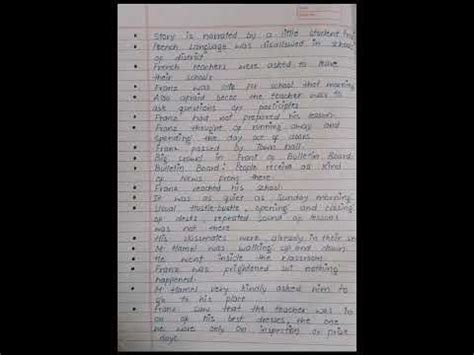 Story is narrated by a little student
French Language was disallowed in schools
of district
French teachers were asked to leave
their schools
Franz was late for school that morning
Also afraid becoz the teacher was to
ask questions on participles
Franz had not prepared his lesson
Franz thought of running away and
spending the day out of doors.
Franz passed by Town hall.
Big crowd in Front of Bulletin Board.
Bulletin Board: People receive all kind
of news from there.
Franz reached his school.
It was as quiet as Sunday morning
Usual hustle-bustle, opening and closing
of desks, repeated sound of lessons
was not there
His classmates were already in their
M. Hamel was walking up and down.
He went inside the classroom.
Franz was frightened but nothing
happened.
M. Hamel very kindly asked him to
go to his place...
Franz saw that the teacher was in
on of his best dresses, the one
he wore only on inspection or prize
days.